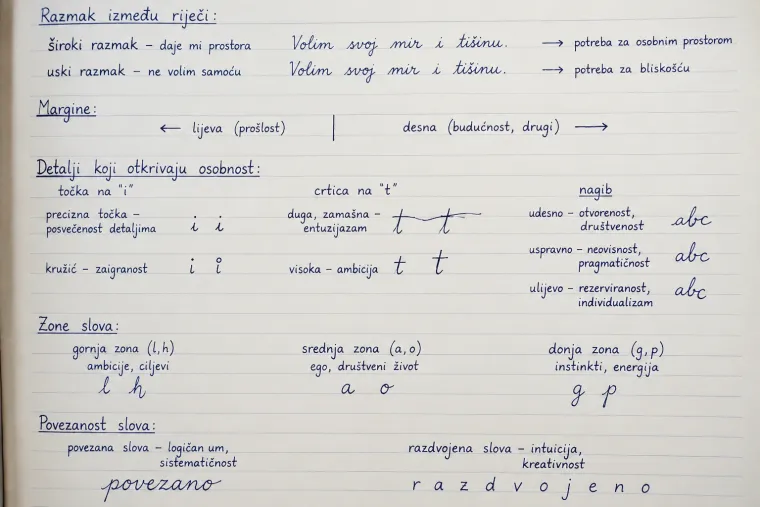 Razmak između riječi:
široki razmak – daje mi prostora Volim svoj mir i tišinu. → potreba za osobnim prostorom
uski razmak – ne volim samoću Volim svoj mir i tišinu. → potreba za bliskošću
Margine:
← lijeva (prošlost) | desna (budućnost, drugi) →
Detalji koji otkrivaju osobnost:
točka na "i"
precizna točka –
posvećenost detaljima
i i
kružić – zaigranost i i
crtica na "t"
duga, zamašna –
entuzijazam
t t
visoka – ambicija t t
nagib
udesno – otvorenost,
društvenost
abc
uspravno – neovisnost,
pragmatičnost
abc
ulijevo – rezerviranost,
individualizam
abc
Zone slova:
gornja zona (l,h)
ambicije, ciljevi
l h
srednja zona (a,o)
ego, društveni život
a o
donja zona (g,p)
instinkti, energija
g p
Povezanost slova:
povezana slova – logičan um,
sistematičnost
povezano
razdvojena slova – intuicija,
kreativnost
r a z d v o j e n o